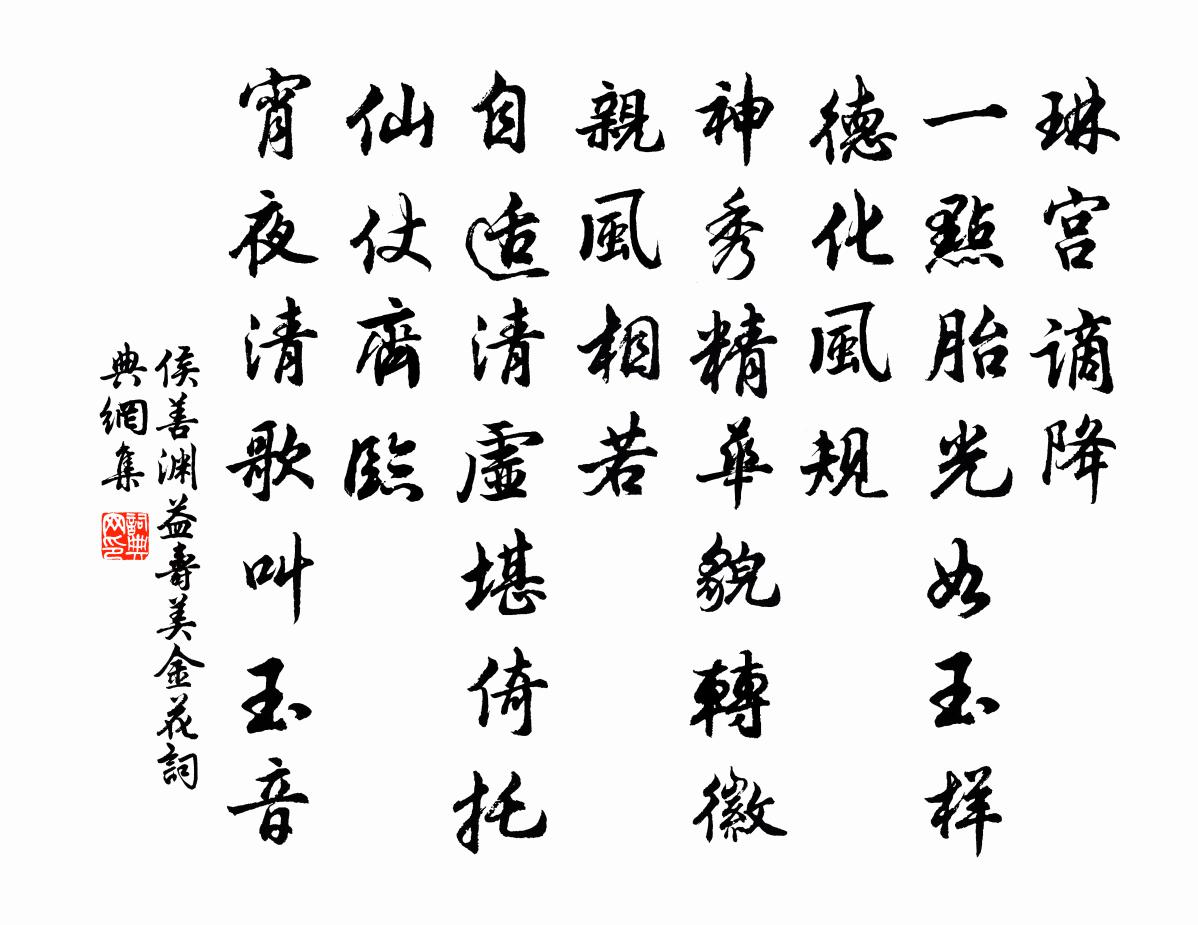 琳宫谪降
一點胎光如玉样
德化風規
神秀精華貌轉徽
親風相若
自适清虛堪倚托
仙仗齊臨
宵夜清歌叫玉音
侯善渊益壽美金花詞
典網集
詞典網印